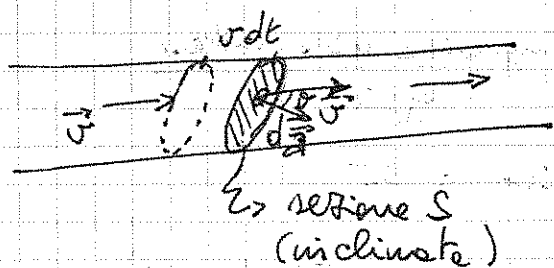 v dt
v⃗
ϑ
v⃗
dS⃗
sezione S
(inclinata)